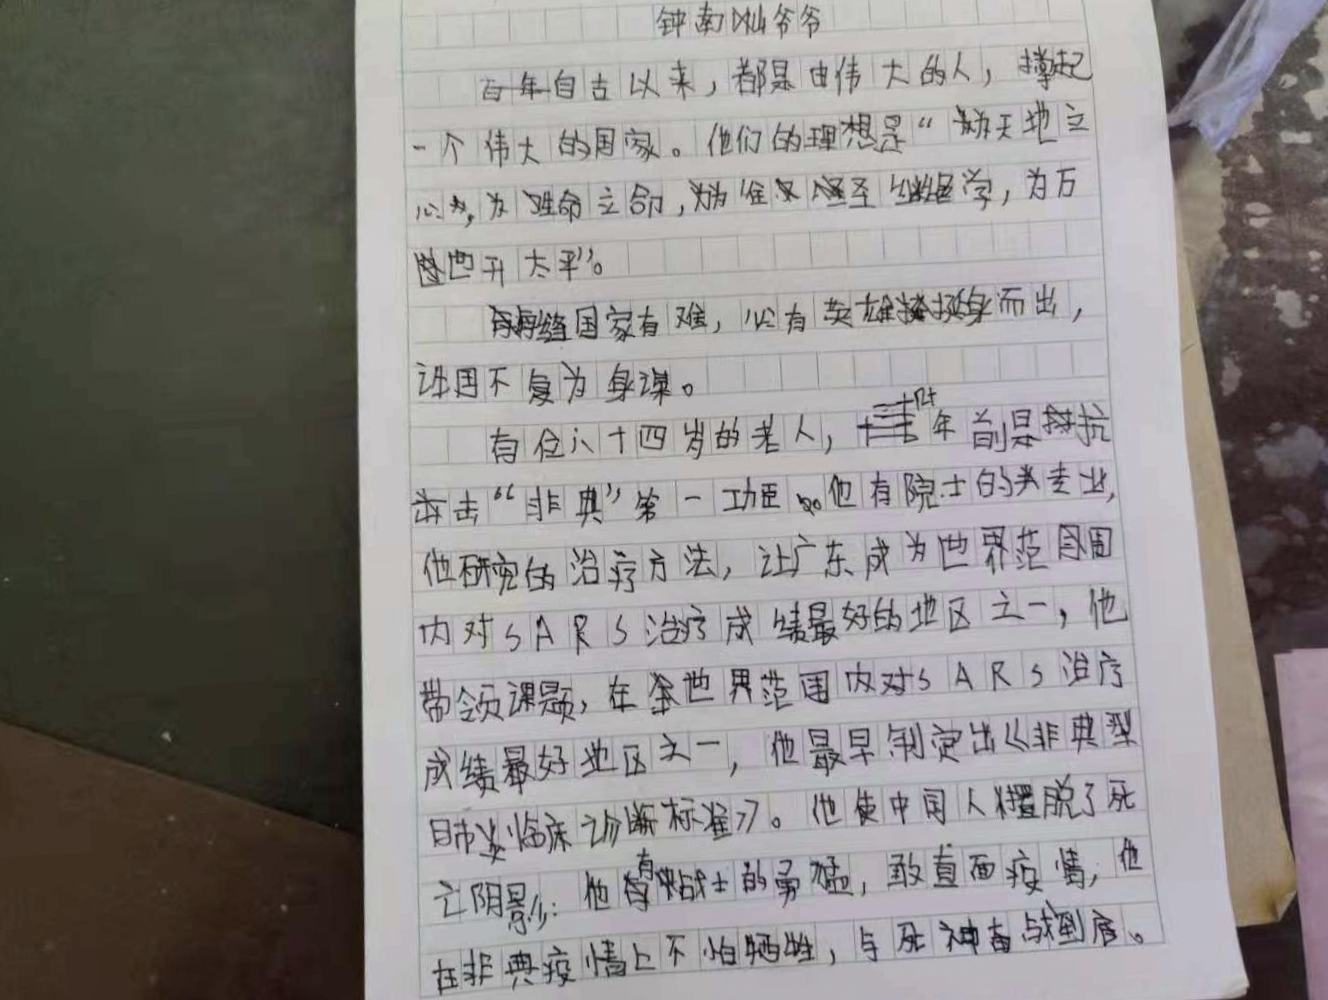 钟南山爷爷
自古以来，都是由伟大的人，撑起
一个伟大的国家。他们的理想是“为天地立
心，为生命立命，为往圣继绝学，为万
世开太平”。
每逢国家有难，必有英雄挺身而出，
许国不复为身谋。
有位八十四岁的老人，十七年前是抗
击“非典”第一功臣。他有院士的专业，
他研究的治疗方法，让广东成为世界范围
内对SARS治疗成绩最好的地区之一，他
带领课题，在全世界范围内对SARS治疗
成绩最好地区之一，他最早制定出《非典型
肺炎临床诊断标准》。他使中国人摆脱了死
亡阴影；他有战士的勇猛，敢直面疫情，他
在非典疫情上不怕牺牲，与死神奋战到底。